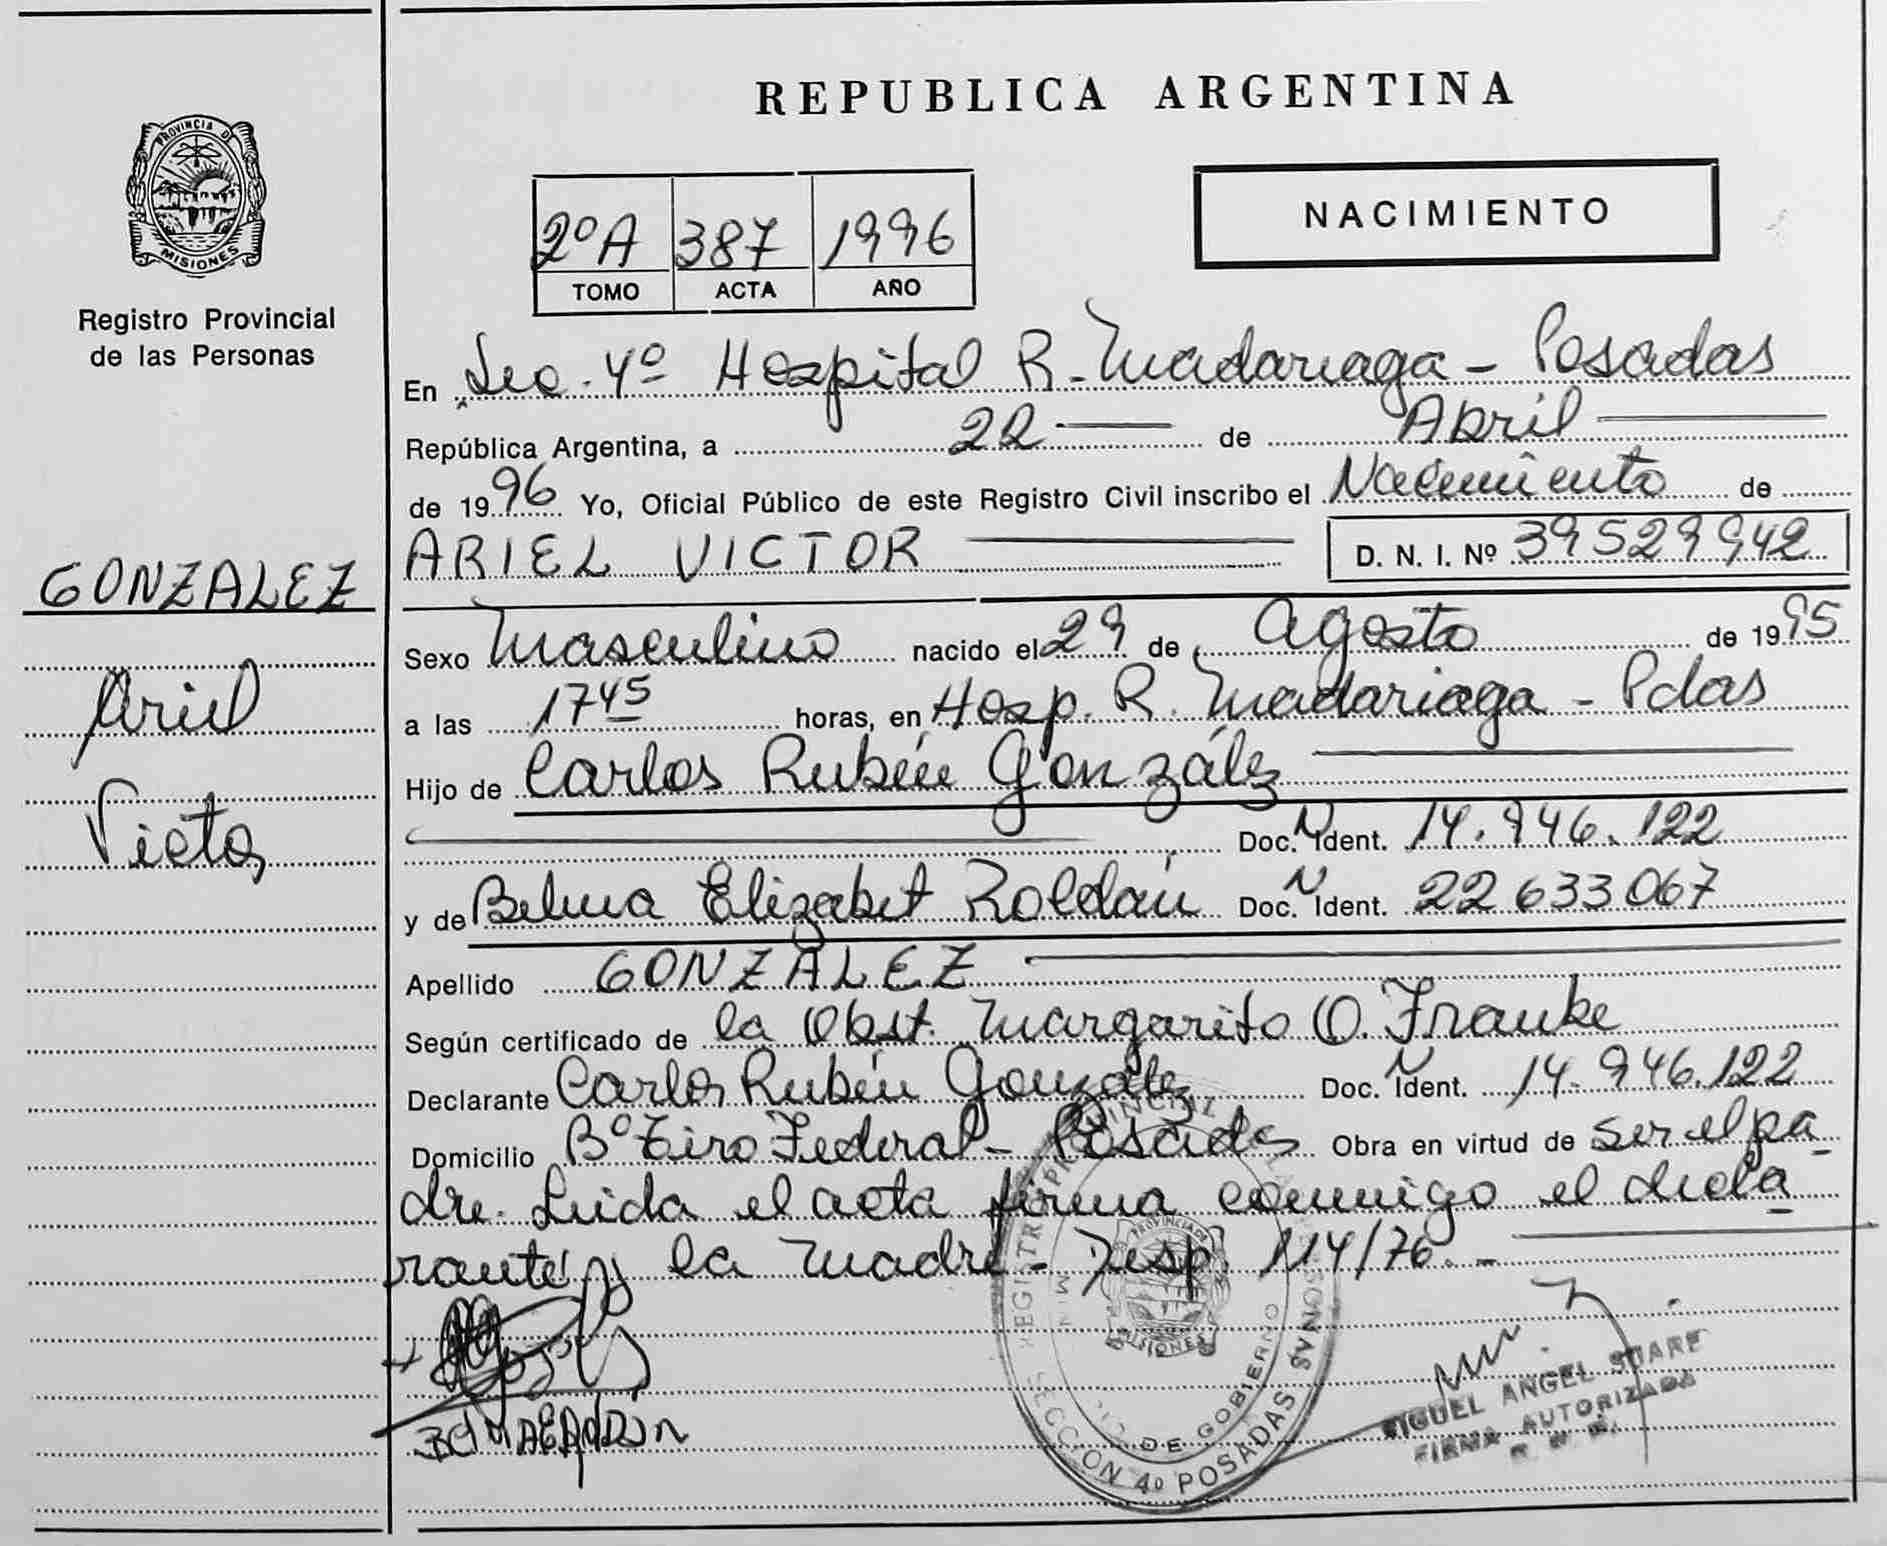 PROVINCIA DE
MISIONES
Registro Provincial
de las Personas
GONZALEZ
Ariel
Victor
REPUBLICA ARGENTINA
2º A 387 1996
TOMO ACTA AÑO
NACIMIENTO
En Sec. 4º Hospital R. Madariaga - Posadas
República Argentina, a 22 de Abril
de 1996 Yo, Oficial Público de este Registro Civil inscribo el Nacimiento de
ARIEL VICTOR D. N. I. Nº 39529942
Sexo Masculino nacido el 29 de Agosto de 1995
a las 17 45 horas, en Hosp. R. Madariaga - Pdas
Hijo de Carlos Rubén González
Doc. N Ident. 14.946.122
y de Belma Elizabet Roldán Doc. N Ident. 22633067
Apellido GONZALEZ
Según certificado de la Obst. Margarita O. Franke
Declarante Carlos Rubén González Doc. N Ident. 14.946.122
Domicilio Bº Tiro Federal - Posadas Obra en virtud de ser el pa
dre. Leida el acta firma conmigo el decla
rante y la madre - Disp. 114/76. -
PROVINCIA DE
MISIONES
DE GOBIERNO
SECCION 4º POSADAS
MIGUEL ANGEL SUARE
FIRMA AUTORIZADA